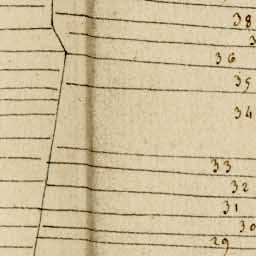 38
3
36
35
34
33
32
31
30
29